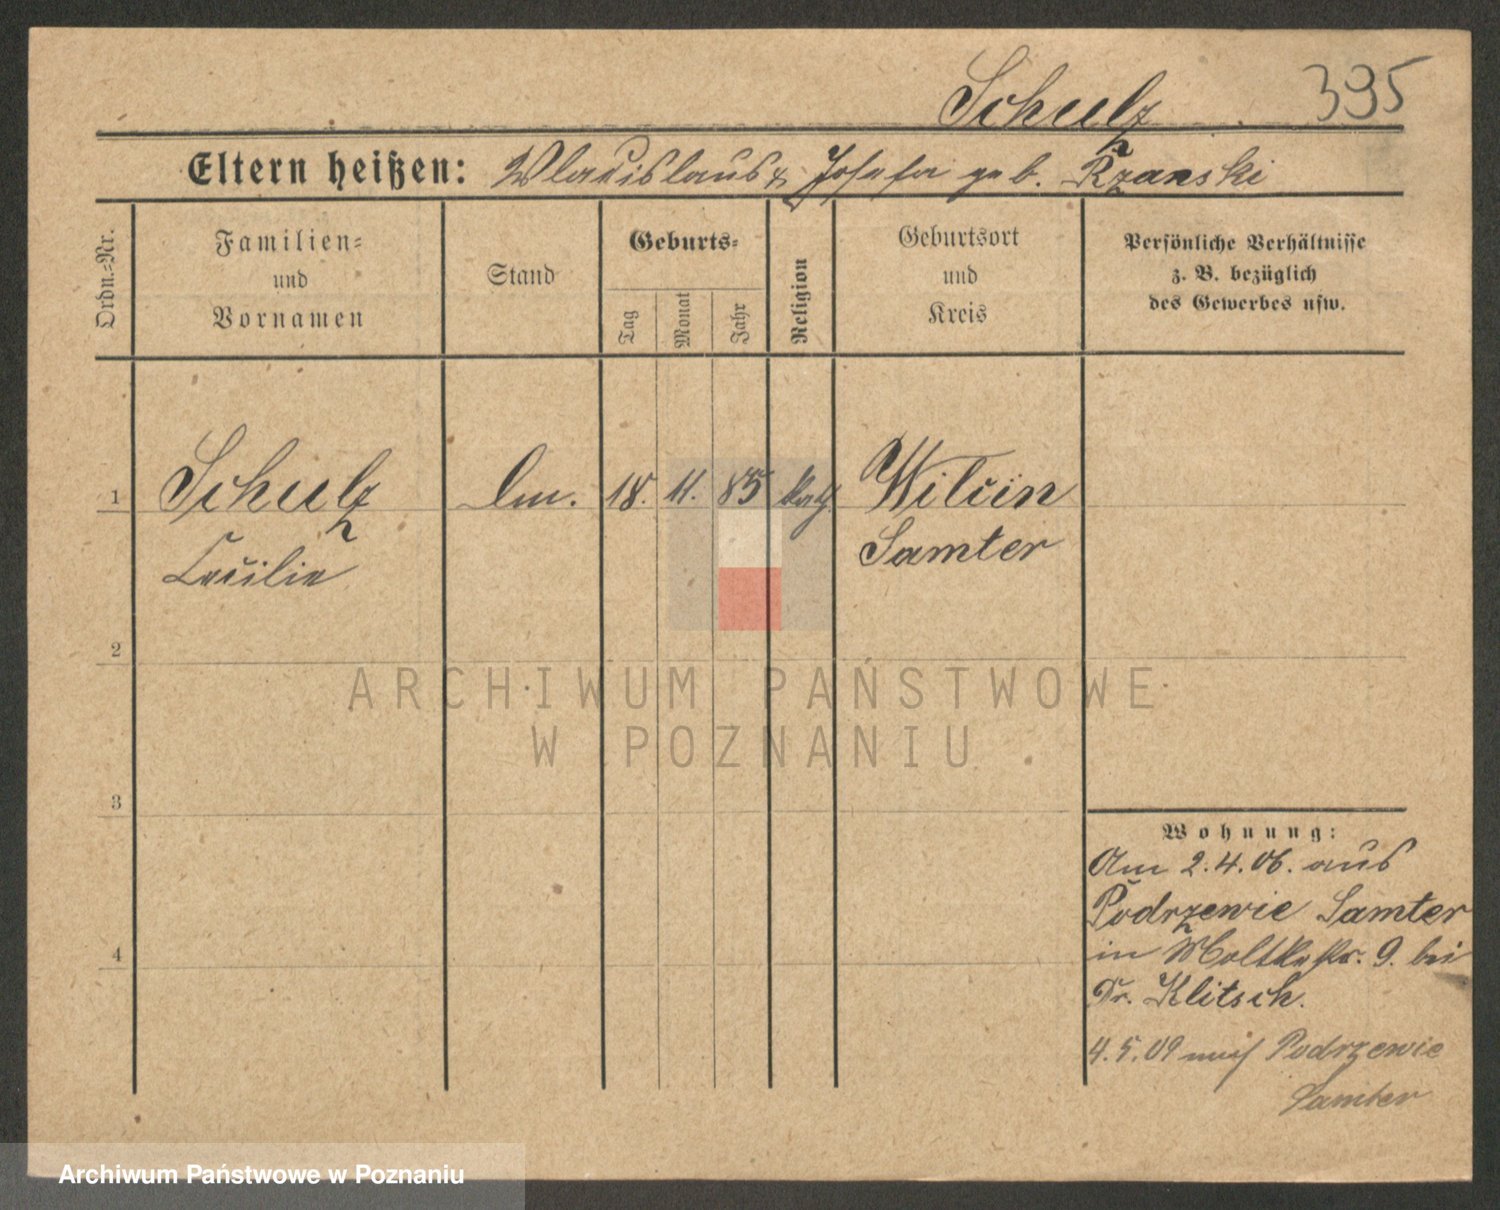 Schulz
395
Eltern heißen: Wladislaus & Josefa geb. Rzanski
Ordn.=Nr.
Familien=
und
Vornamen
Stand
Geburts=
Tag
Monat
Jahr
Religion
Geburtsort
und
Kreis
Persönliche Verhältnisse
z. B. bezüglich
des Gewerbes usw.
1 Schulz 18. 11. 85 kath. Wilcin
Cecilie Samter
2
3
4
Wohnung:
Am 2.4.06. aus
Podrzewie Samter
in Moltkestr. 9. bei
Dr. Klitsch.
4.5.09 nach Podrzewie
Samter
ARCHIWUM PAŃSTWOWE
W POZNANIU
Archiwum Państwowe w Poznaniu